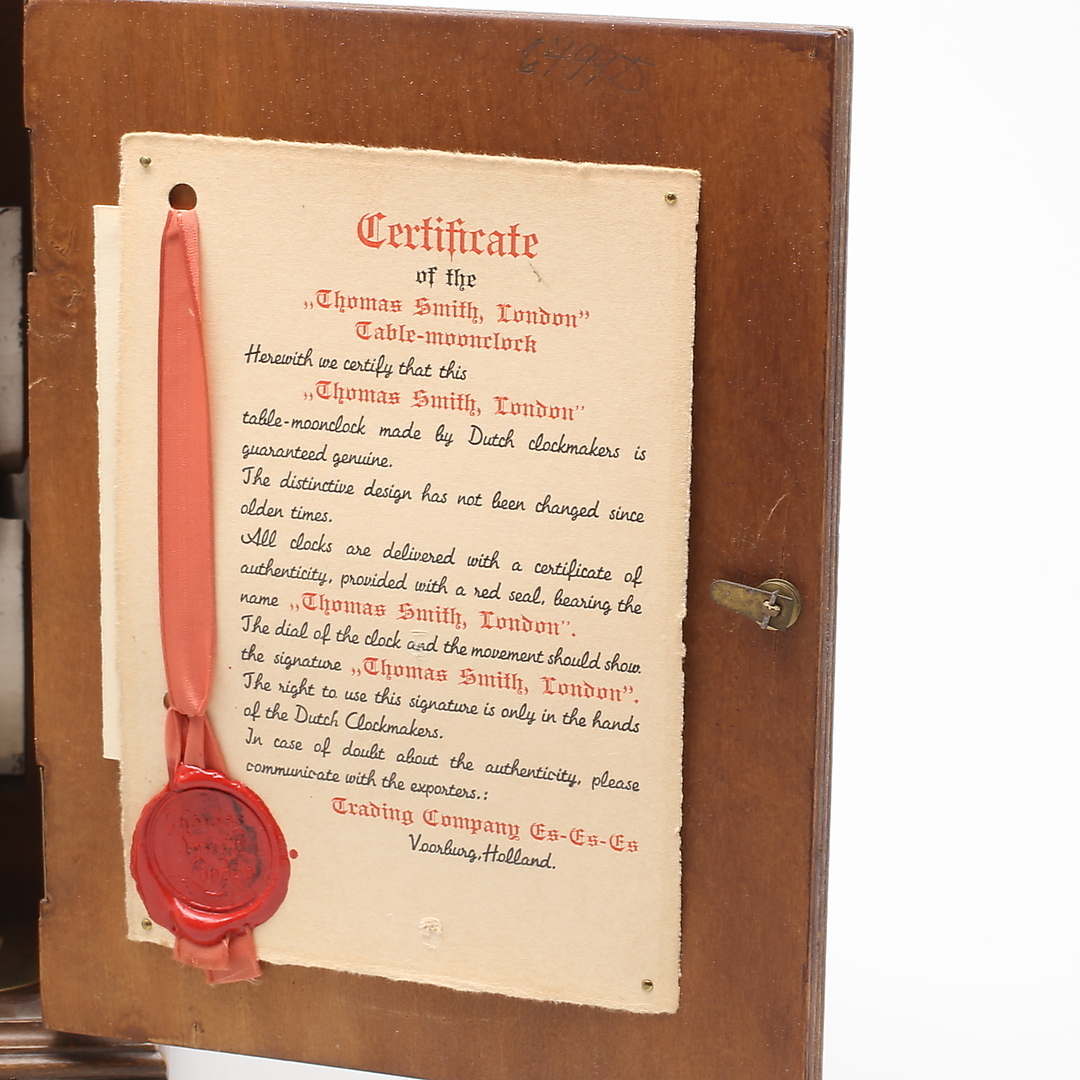 Certificate
of the
„Thomas Smith, London”
Table-moonclock
Herewith we certify that this
„Thomas Smith, London”
table-moonclock made by Dutch clockmakers is
guaranteed genuine.
The distinctive design has not been changed since
olden times.
All clocks are delivered with a certificate of
authenticity, provided with a red seal, bearing the
name „Thomas Smith, London”.
The dial of the clock and the movement should show
the signature „Thomas Smith, London”.
The right to use this signature is only in the hands
of the Dutch Clockmakers.
In case of doubt about the authenticity, please
communicate with the exporters.:
Trading Company Es-Es-Es
Voorburg, Holland.